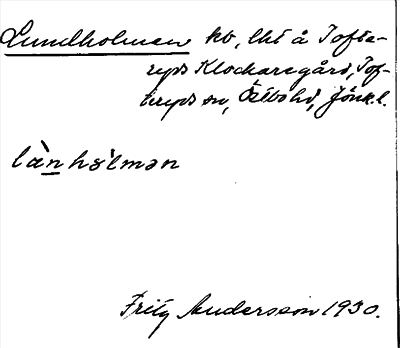 Lundholmen kv, lht å Tofta-
ryds Klockaregård, Tof-
teryds sn, Östbo hd, Jönk. l.
làn hòlmən
Fritz Andersson 1930.